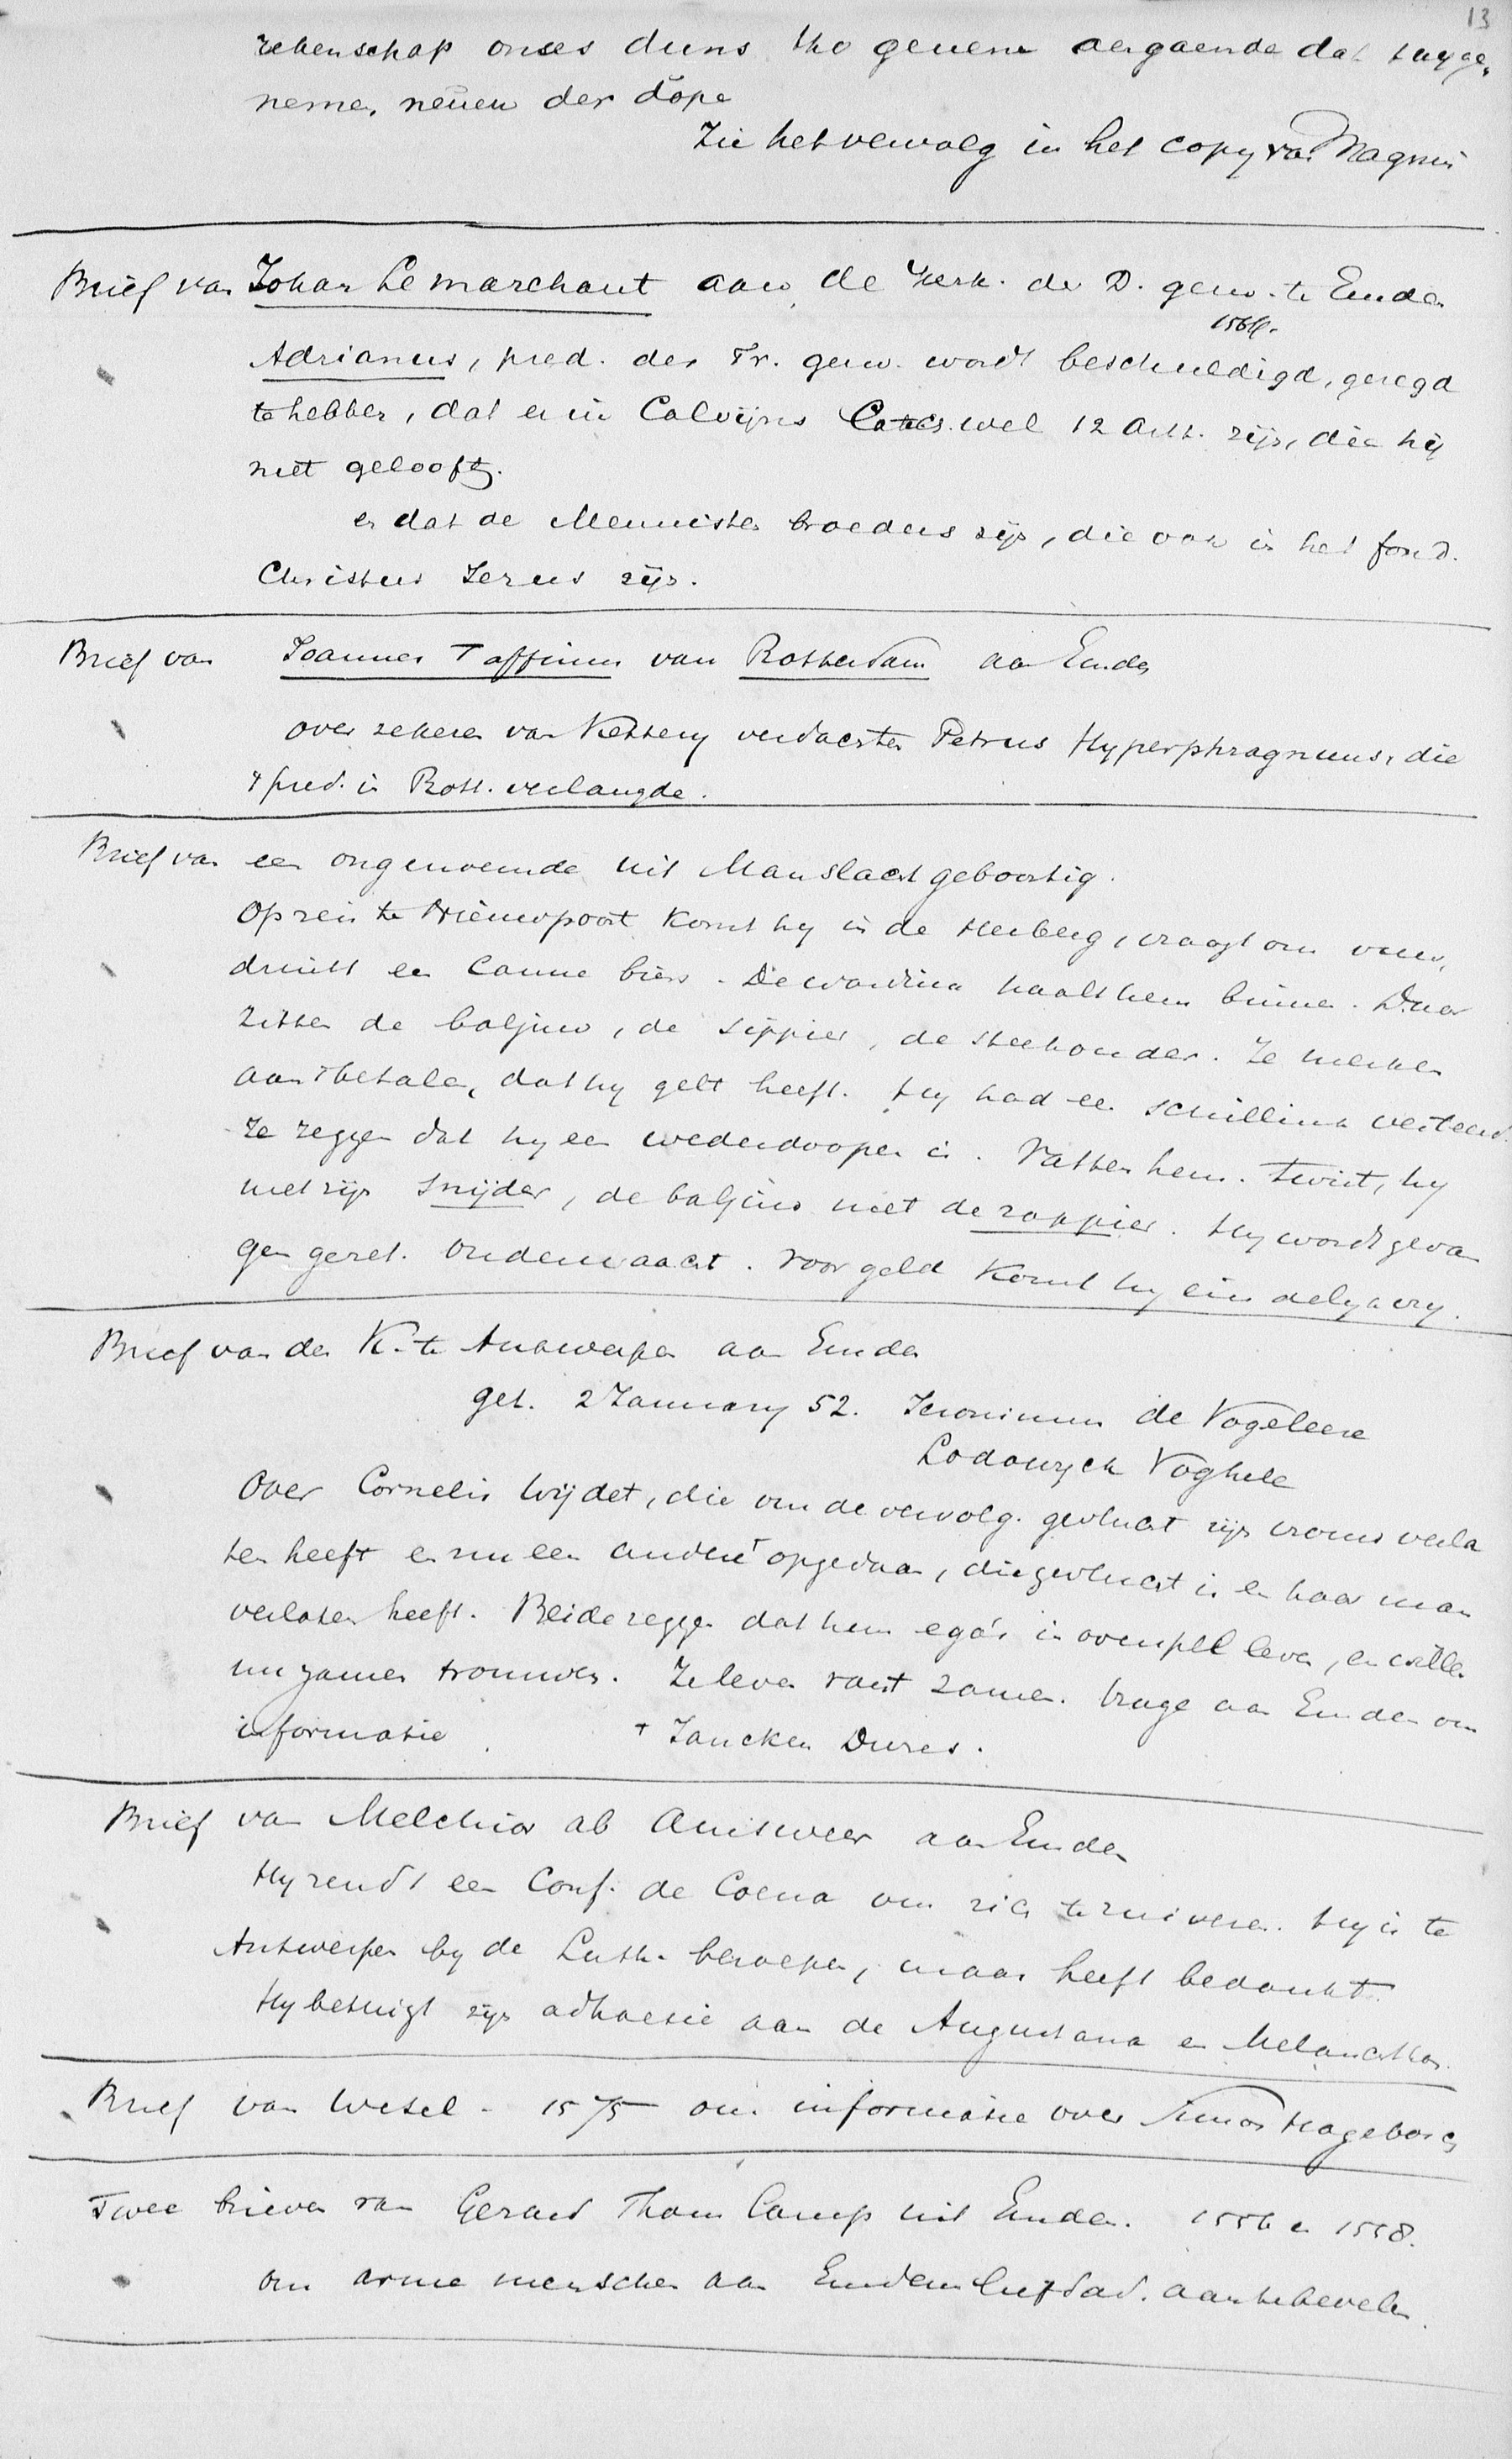 13
rekenschap onses duns tho geuene aengaende dat
nemen neuen der döpe
Zie het vervolg in het copy van Magnin
Brief van Johan Le marchant aan de Kerk. der D. gem. te Emden
1566.
Adrianus, pred. der Fr. gem. wordt beschuldigd, gezegd
te hebben, dat er in Calvijns Catecs. wel 12 Artt. zijn, die hij
niet gelooft.
en dat de Mennisten broeders zijn, die ook in het fond.
Christus Jezus zijn.
Brief van Joannes Taffinus van Rotterdam aan Emden
over zekeren van Kettery verdachten Petrus Hyperphragmus, die
pred. in Rott. verlangde.
Brief van een ongenoemde uit Manslacht geboortig.
Op reis te Nieuwpoort komt hy in de Herberg, vraagt om vuur,
drinkt een Canne biers. De waardin haalt hem binnen. Daar
zitten de baljuw, de sippier, de steehouder. Ze merken
aan 't betalen, dat hy gelt heeft. Hy had een schillink verteerd.
Ze zeggen dat hy een wederdooper is. Vatten hem. Twist, hy
met zijn snijder, de baljuw met de rappier. Hy wordt gevan
gen gezet. Onderwacht. Voor geld komt hy eindelyk vry.
Brief van den K. te Antwerpen aan Emden
get. 2 January 52. Jeronimus de Vogeleere
Lodowyck Voghele
Over Cornelis Wijdet, die om de vervolg. gevlucht zijn vrouw verla
ten heeft en nu een andere + opgedaan, die gevlucht is en haar man
verlaten heeft. Beide zeggen dat hun ega's in overspel leven, en willen
nu zamen trouwen. Ze leven vast zamen. Vrage aan Emden om
informatie. + Jancken Dures.
Brief van Melchior ab aan Emden
Hy zendt een Conf. de Coena om zich te zuiveren. Hy is te
Antwerpen by de Luth. beroepen, maar heeft bedankt.
Hy betuigt zijn adhaesie aan de Augustana en Melanchton.
Brief van Wesel - 1575 om informatie over Simon Hageborg
Twee brieven van Gerard Thom Camp uit Emden. 1556 en 1558.
om arme menschen aan Emdens liefdad. aan te bevelen.